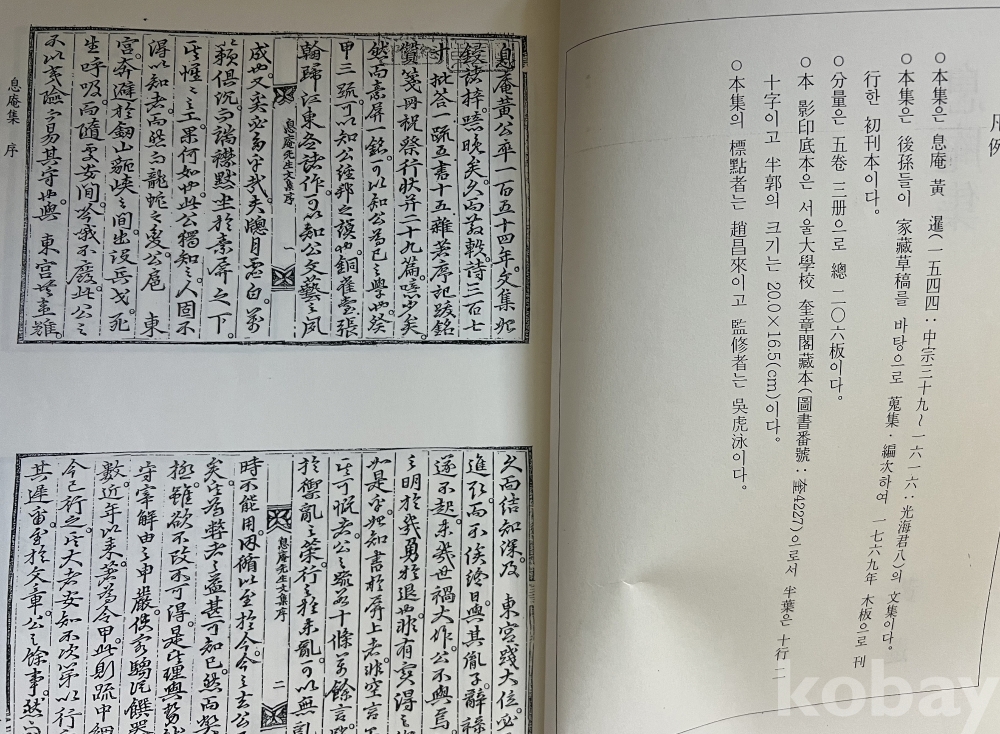 凡例
○本集은 息庵 黃 暹(一五四四:中宗三十九~一六一六:光海君八)의 文集이다。
○本集은 後孫들이 家藏草稿를 바탕으로 蒐集·編次하여 一七六九年 木板으로 刊
行한 初刊本이다。
○分量은 五卷 三册으로 總 二〇六板이다。
○本 影印底本은 서울大學校 奎章閣藏本(圖書番號:奎4227)으로서 半葉은 十行 二
十字이고 半郭의 크기는 20.0×16.5(cm)이다。
○本集의 標點者는 趙昌來이고 監修者는 吳虎泳이다。
息庵黃公卒一百五十四年。文集始
鋟諸梓。噫晩矣。詩三百七
十。批答一疏五書十五雜著序記跋銘
贊箋冊祝祭行狀幷二十九篇。噫少矣。
然而素屛一銘。可以知公爲己之學也。癸
甲三疏。可以知公經邦之謨也。銅雀臺張
翰歸江東各詩作。可以知公文藝之夙
息庵先生文集序
一
成也。又奚必多乎哉。夫牕月虛白。萬
籟俱沉。而端襟默坐於素屛之下。
其惺惺之工果何如也。此公獨知之。人固不
得以知者。而然而龍蛇之變。公扈 東
宮。奔避於劒山峽之間。出沒兵戈。死
生呼吸。而隨處安閒。吟哦不廢。此公之
不以夷險而易其守也。與 東宮共患難。
息庵集 序
久而結知深。及 東宮踐大位。必
進而不俟終日。與其胤子辭祿
遂不起。未幾世禍大作。公不與焉
之明於幾勇於退也。非有實得之
如是乎。始知書於屛上者。非空言
其可慨者。公之疏十條萬餘言。
於禦亂之策。行之於未亂。可以無亂
息庵先生文集序
二
時不能用。因循以至於今。今之去公
矣。其爲弊者之益甚可知已。然而
極雖欲不改不可得。是理與勢
守宰解由之申嚴。使
數近年以來。著爲令甲。此則疏中細
今已行之。其大者安知不次第以行
其遲至於文章。公之餘事。然而
kobay